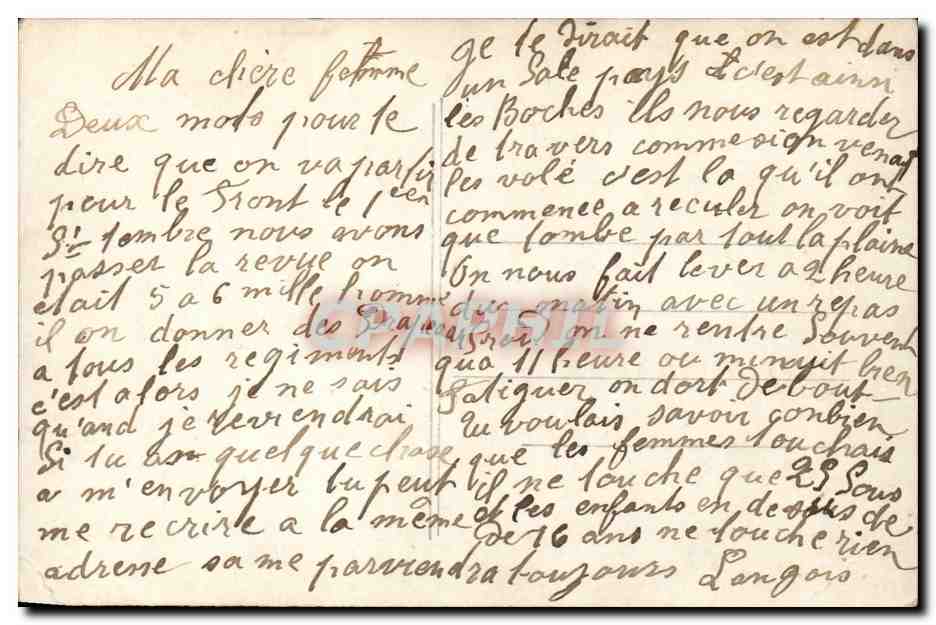 Ma chère femme
Deux mots pour te
dire que on va partir
pour le Front le 1er
S tembre nous avons
passer la revue on
etait 5 a 6 mille homme
il on donner des Drapeaux
a tous les regiments
c'est afors je ne sais
qu'and je reviendrai
Si tu as quelque chose
a m'envoyer tu peut
me recrire a la même
adresse sa me parviendra toujours Langois
ge te dirait que on est dans
un Sale pays et c'est ainsi
les Boches Ils nous regarder
de travers comme si on venait
les volé c'est la qu'il ont
commence a reculer on voit
que tombe par tout la plaine
On nous fait lever a 2 heure
du matin avec un repas
froid on ne rentre Souvent
qua 11 heure ou minuit bien
Fatiguer on dort Debout
Tu voulais savoir conbien
que les femmes touchais
il ne touche que 25 Sous
et les enfants en desous de
De 16 ans ne touche rien
CPARAMA